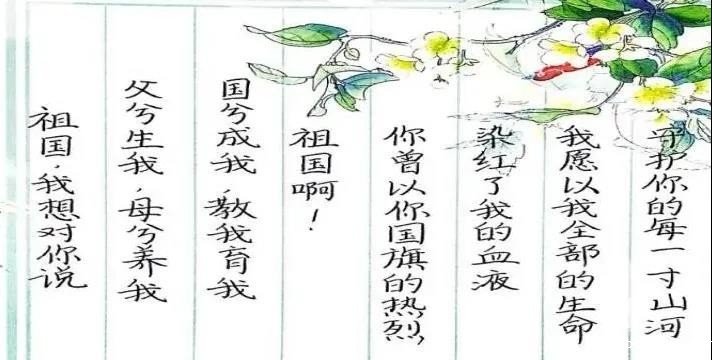 祖国,我想对你说
父兮生我,母兮养我
国兮成我,教我育我
祖国啊!
你曾以你国旗的热烈
染红了我的血液
我愿以我全部的生命
守护你的每一寸山河